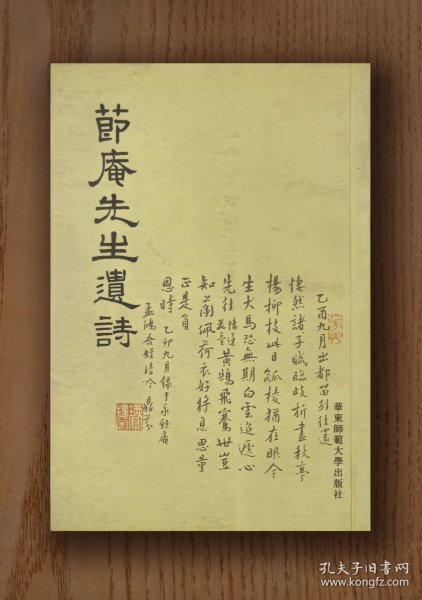 節庵先生遺詩
乙酉九月出都留別往還
悽然諸子賦臨歧折盡秋亭
楊柳枝此日觚棱猶在眼今
生犬馬恐無期白雲迢遞心
先往
黃鵠飛騫世豈
知蘭佩荷衣好將息思量
正是負
恩時 乙卯九月錄于
孟鴻吾姪清吟
華東師範大學出版社
孔夫子旧书网
www.kongfz.com